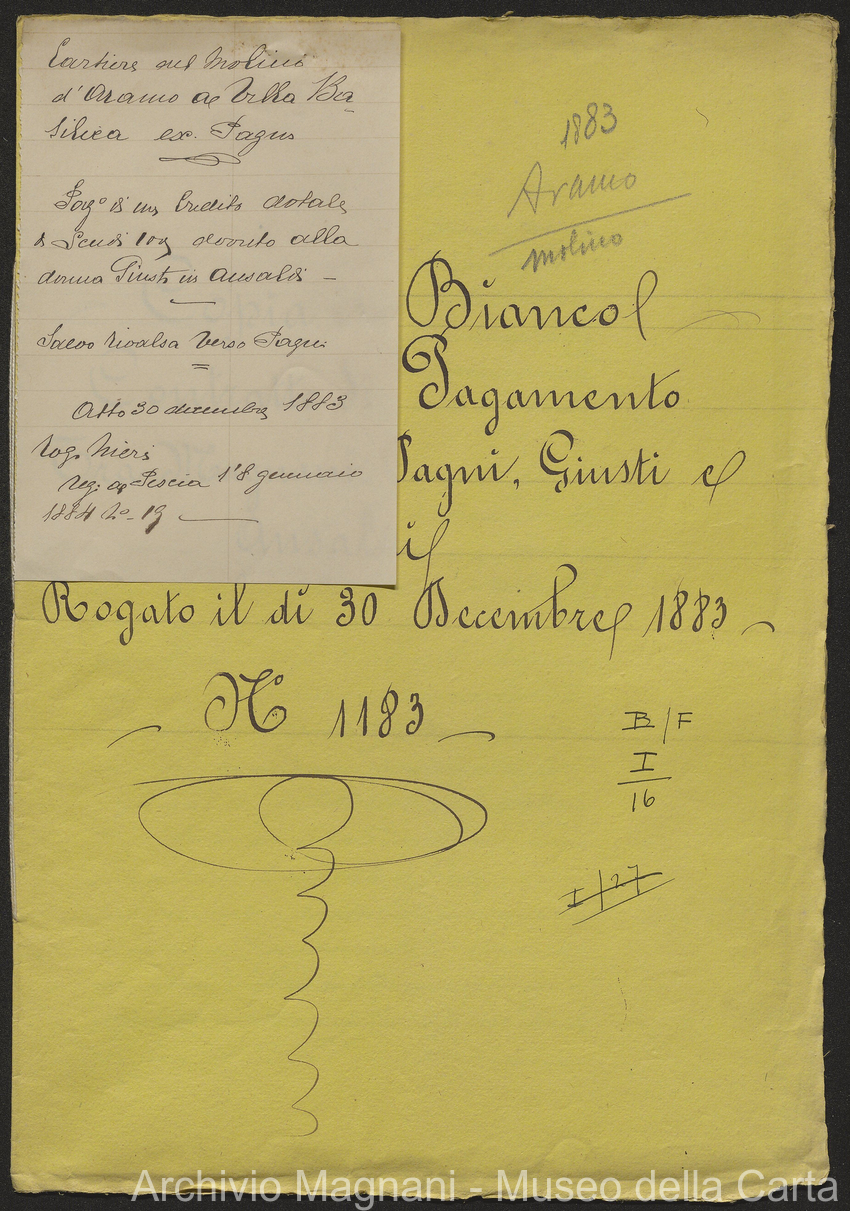 Cartiera nel Molino
d'Aramo a Villa Ba-
silica ex. Pagni
Pag.º di un Credito dotale
di Scudi 109 dovuto alla
donna Giusti in Ansaldi -
Salvo rivalsa verso Pagni
Atto 30 decembre 1883
Rog. Nieri
reg. a Pescia l'8 gennaio
1884 Nº 19
1883
Aramo
molino
Bianco
Pagamento
Pagni, Giusti e
Rogato il di 30 Decembre 1883
Nº 1183
B/F
I
16
I/27
Archivio Magnani - Museo della Carta